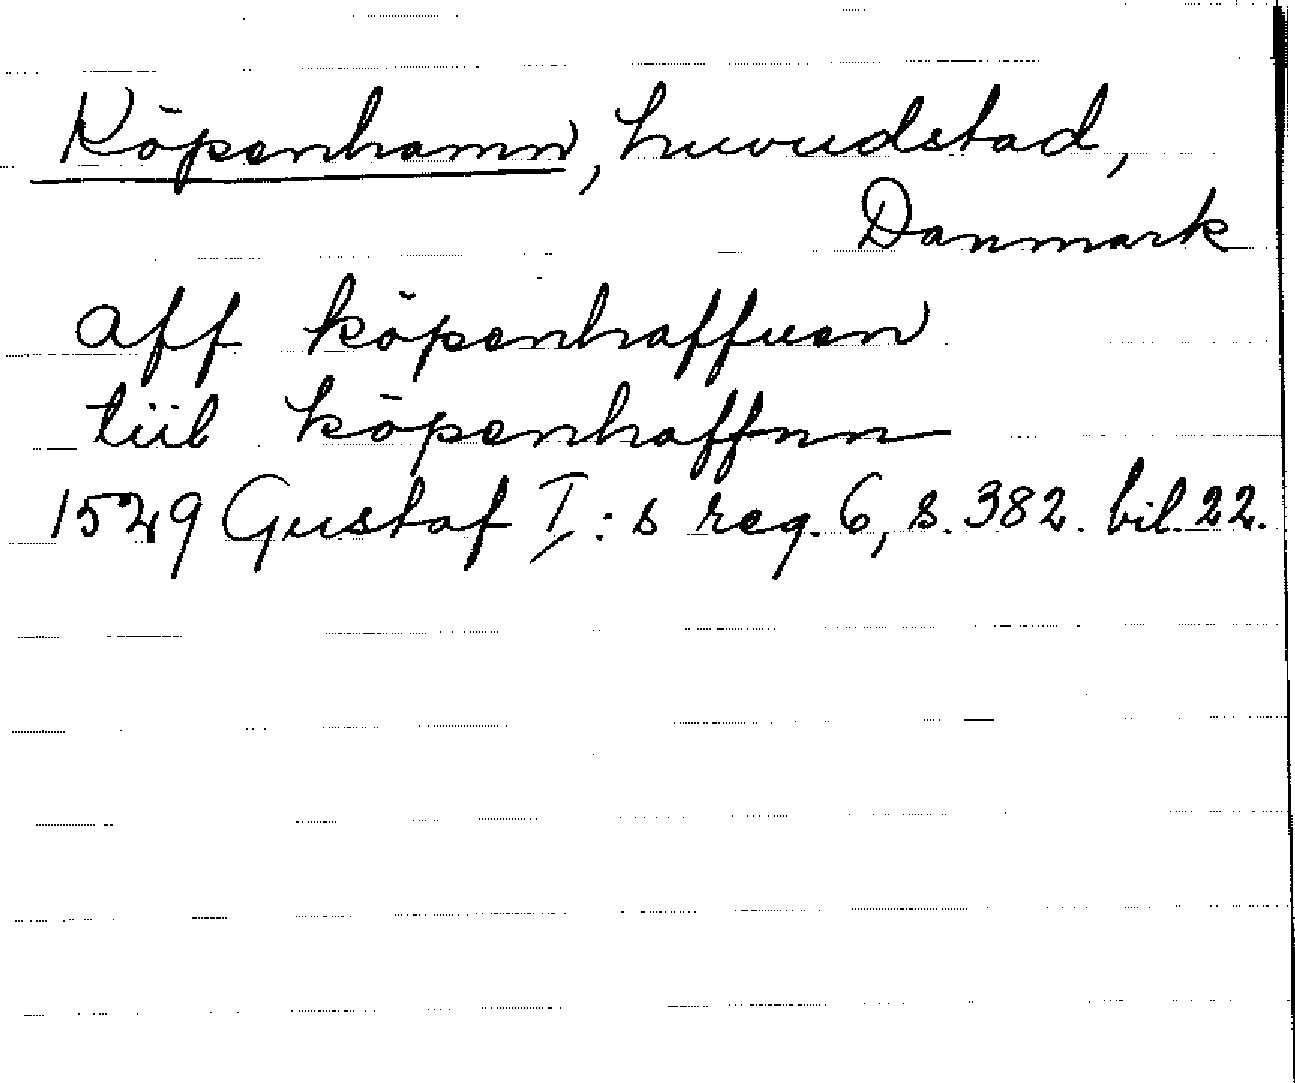 Köpenhamn, huvudstad,
Danmark
aff köpenhaffuen
tiil köpenhaffnn
1529 Gustaf I:s reg. 6, s. 382. bil. 22.